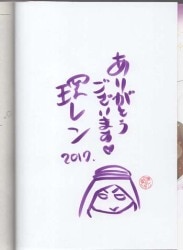 ありがとう
ございます♥
環レン
2017.